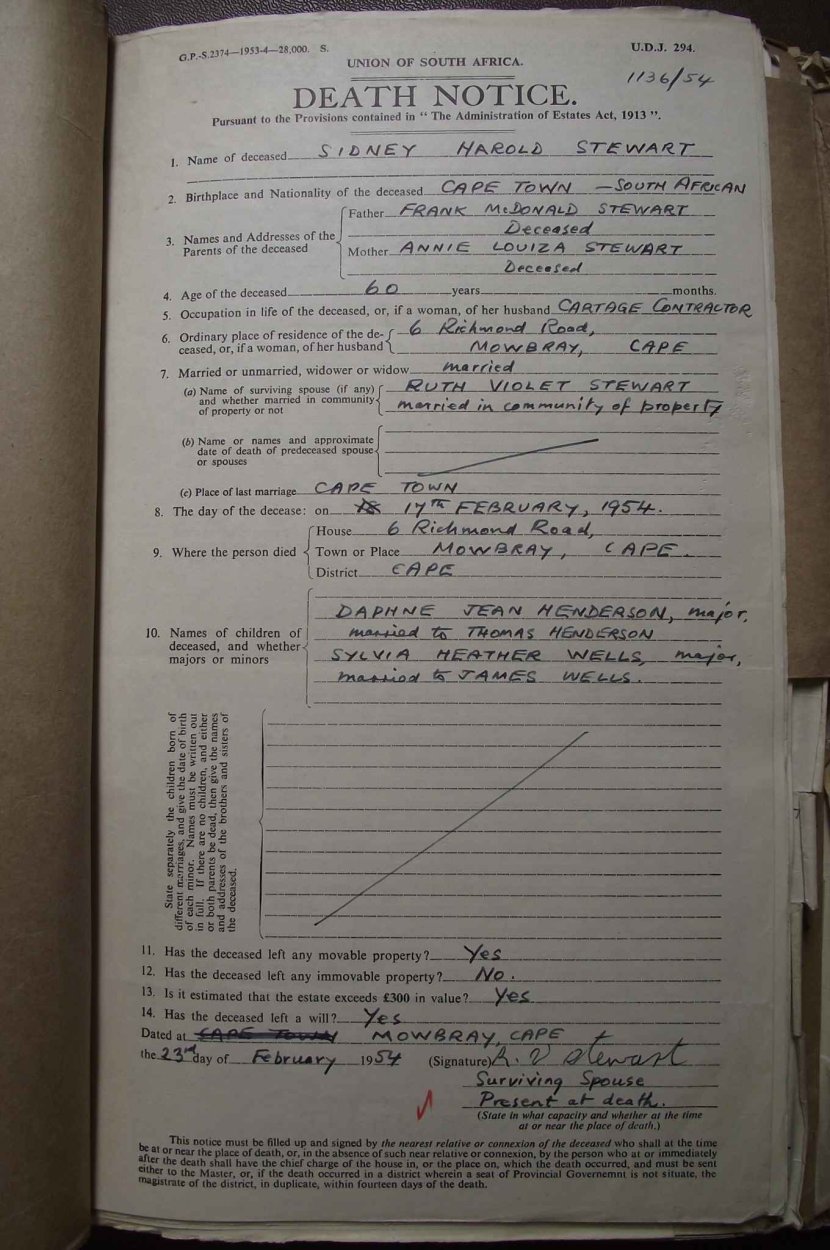 G.P.-S.2374—1953-4—28,000. S.
U.D.J. 294.
UNION OF SOUTH AFRICA.
1136/54
DEATH NOTICE.
Pursuant to the Provisions contained in “ The Administration of Estates Act, 1913 ”.
1. Name of deceased SIDNEY HAROLD STEWART
2. Birthplace and Nationality of the deceased CAPE TOWN — SOUTH AFRICAN
3. Names and Addresses of the Parents of the deceased
Father FRANK McDONALD STEWART
Deceased
Mother ANNIE LOUIZA STEWART
Deceased
4. Age of the deceased 60 years months.
5. Occupation in life of the deceased, or, if a woman, of her husband CARTAGE CONTRACTOR
6. Ordinary place of residence of the de- 6 Richmond Road,
ceased, or, if a woman, of her husband MOWBRAY, CAPE
7. Married or unmarried, widower or widow married
(a) Name of surviving spouse (if any) RUTH VIOLET STEWART
and whether married in community married in community of property
of property or not
(b) Name or names and approximate
date of death of predeceased spouse
or spouses
(c) Place of last marriage CAPE TOWN
8. The day of the decease: on 17TH FEBRUARY, 1954.
9. Where the person died
House 6 Richmond Road,
Town or Place MOWBRAY, CAPE.
District CAPE
10. Names of children of
deceased, and whether
majors or minors
DAPHNE JEAN HENDERSON, major,
married to THOMAS HENDERSON
SYLVIA HEATHER WELLS, major,
married to JAMES WELLS.
State separately the children born of
different marriages, and give the date of birth
of each minor. Names must be written out
in full. If there are no children, and either
or both parents be dead, then give the names
and addresses of the brothers and sisters of
the deceased.
11. Has the deceased left any movable property? Yes
12. Has the deceased left any immovable property? No.
13. Is it estimated that the estate exceeds £300 in value? Yes
14. Has the deceased left a will? Yes
Dated at CAPE TOWN MOWBRAY, CAPE
the 23rd day of February 1954 (Signature) R. V Stewart
Surviving Spouse
Present at death.
(State in what capacity and whether at the time
at or near the place of death.)
This notice must be filled up and signed by the nearest relative or connexion of the deceased who shall at the time
be at or near the place of death, or, in the absence of such near relative or connexion, by the person who at or immediately
after the death shall have the chief charge of the house in, or the place on, which the death occurred, and must be sent
either to the Master, or, if the death occurred in a district wherein a seat of Provincial Governemnt is not situate, the
magistrate of the district, in duplicate, within fourteen days of the death.